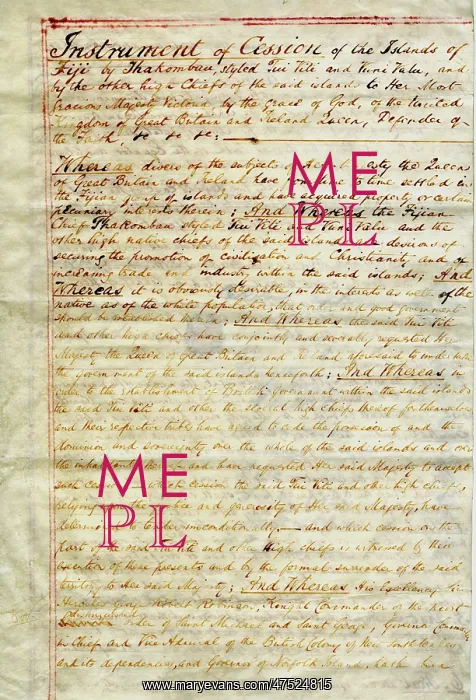 Instrument of Cession of the Islands of
Fiji by Thakombau, styled Tui Viti and Vuni Valu, and
by the other high Chiefs of the said islands to Her Most
Gracious Majesty Victoria, by the grace of God, of the United
Kingdom of Great Britain and Ireland Queen, Defender of
the Faith, &c &c &c: —
Whereas divers of the subjects of Majesty the Queen
of Great Britain and Ireland have from time to time settled in
the Fijian group of islands and have acquired property or certain
pecuniary interests therein; And Whereas the Fijian
Chief Thakombau styled Tui Viti and Vuni Valu and the
other high native chiefs of the said islands are desirous of
securing the promotion of civilisation and Christianity and of
increasing trade and industry within the said islands; And
Whereas it is obviously desirable in the interests as well of the
native as of the white population, that order and good government
should be established therein; And Whereas the said Tui Viti
and other high chiefs have conjointly and severally requested Her
Majesty the Queen of Great Britain and Ireland aforesaid to undertake
the government of the said islands henceforth; And Whereas in
order to the establishment of British government within the said islands
the said Tui Viti and other the several high chiefs thereof for themselves
and their respective tribes have agreed to cede the possession of and the
dominion and sovereignty over the whole of the said islands and over
the inhabitants thereof and have requested Her said Majesty to accept
such cession which cession the said Tui Viti and other high chiefs,
relying the justice and generosity of Her said Majesty, have
determined to tender unconditionally — and which cession on the
part of the said Tui Viti and other high chiefs is witnessed by their
execution of these presents and by the formal surrender of the said
territory to Her said Majesty; And Whereas His Excellency Sir
Hercules George Robert Robinson, Knight Commander of the most
distinguished
order of Saint Michael and Saint George, Governor Commander
in Chief and Vice Admiral of the British Colony of New South Wales
and its dependencies, and Governor of Norfolk Island, hath been
ME
PL
ME
PL
www.maryevans.com/47524815